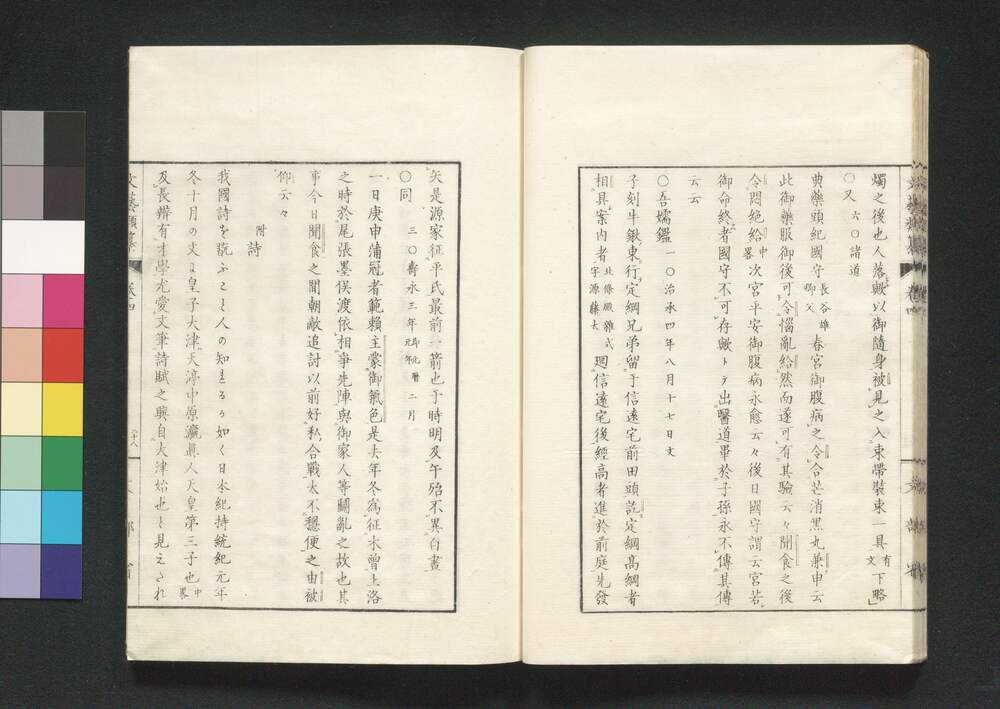 燭之後也人落歟以御隨身被見之入束帶裝束一具有文下略」
○又六○諸道
典藥頭紀國守長谷雄卿父春宮御腹病之令合芒消黑丸兼申云
此御藥服御後可令惱亂給然而遂可有其驗云々聞食之後
令悶絶給中畧次宮平安御腹病永愈云々後日國守謂云宮若
御命終者國守不可存歟トテ出醫道畢於子孫永不傳其傳
云云
○吾嬬鑑一○治承四年八月十七日文
子刻牛鍬東行定綱兄弟留于信遠宅前田頭訖定綱高綱者
相具案内者北條殿雜式字源藤太廻信遠宅後經高者進於前庭先發
矢是源家征平氏最前一箭也于時明及午殆不異白晝
○同三○壽永三年即元曆元年二月
一日庚申蒲冠者範賴主蒙御氣色是去年冬爲征木曾上洛
之時於尾張墨俣渡依相爭先陣與御家人等鬭亂之故也其
事今日聞食之聞朝敵追討以前好私合戰太不穩便之由被
仰云々
附詩
我國詩を翫ふこと人の知まるゝ如く日本紀持統紀元年
冬十月の文よ皇子大津天渟中原瀛眞人天皇第三子也中畧
及長辨有才學尤愛文筆詩賦之興自大津始也と見えされ
文藝類纂 卷四 二十八 文部省